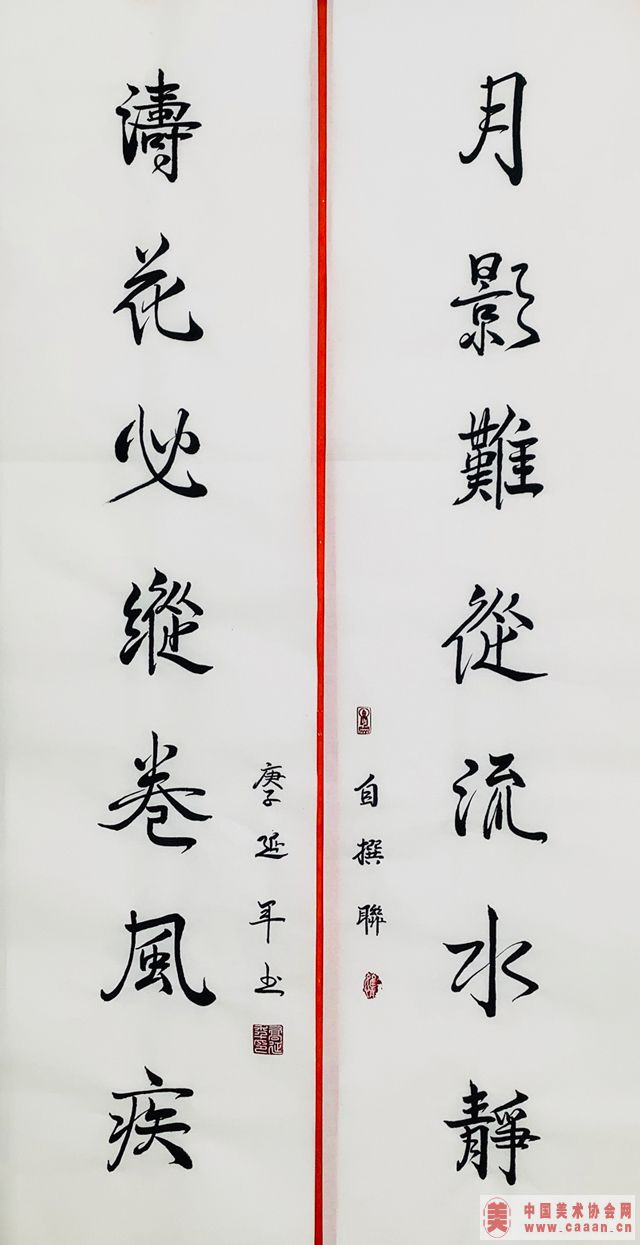 月影難從流水靜
自撰聯
濤花必縱卷風疾
庚子延年书
美 中国美术协会网
www.caaan.cn